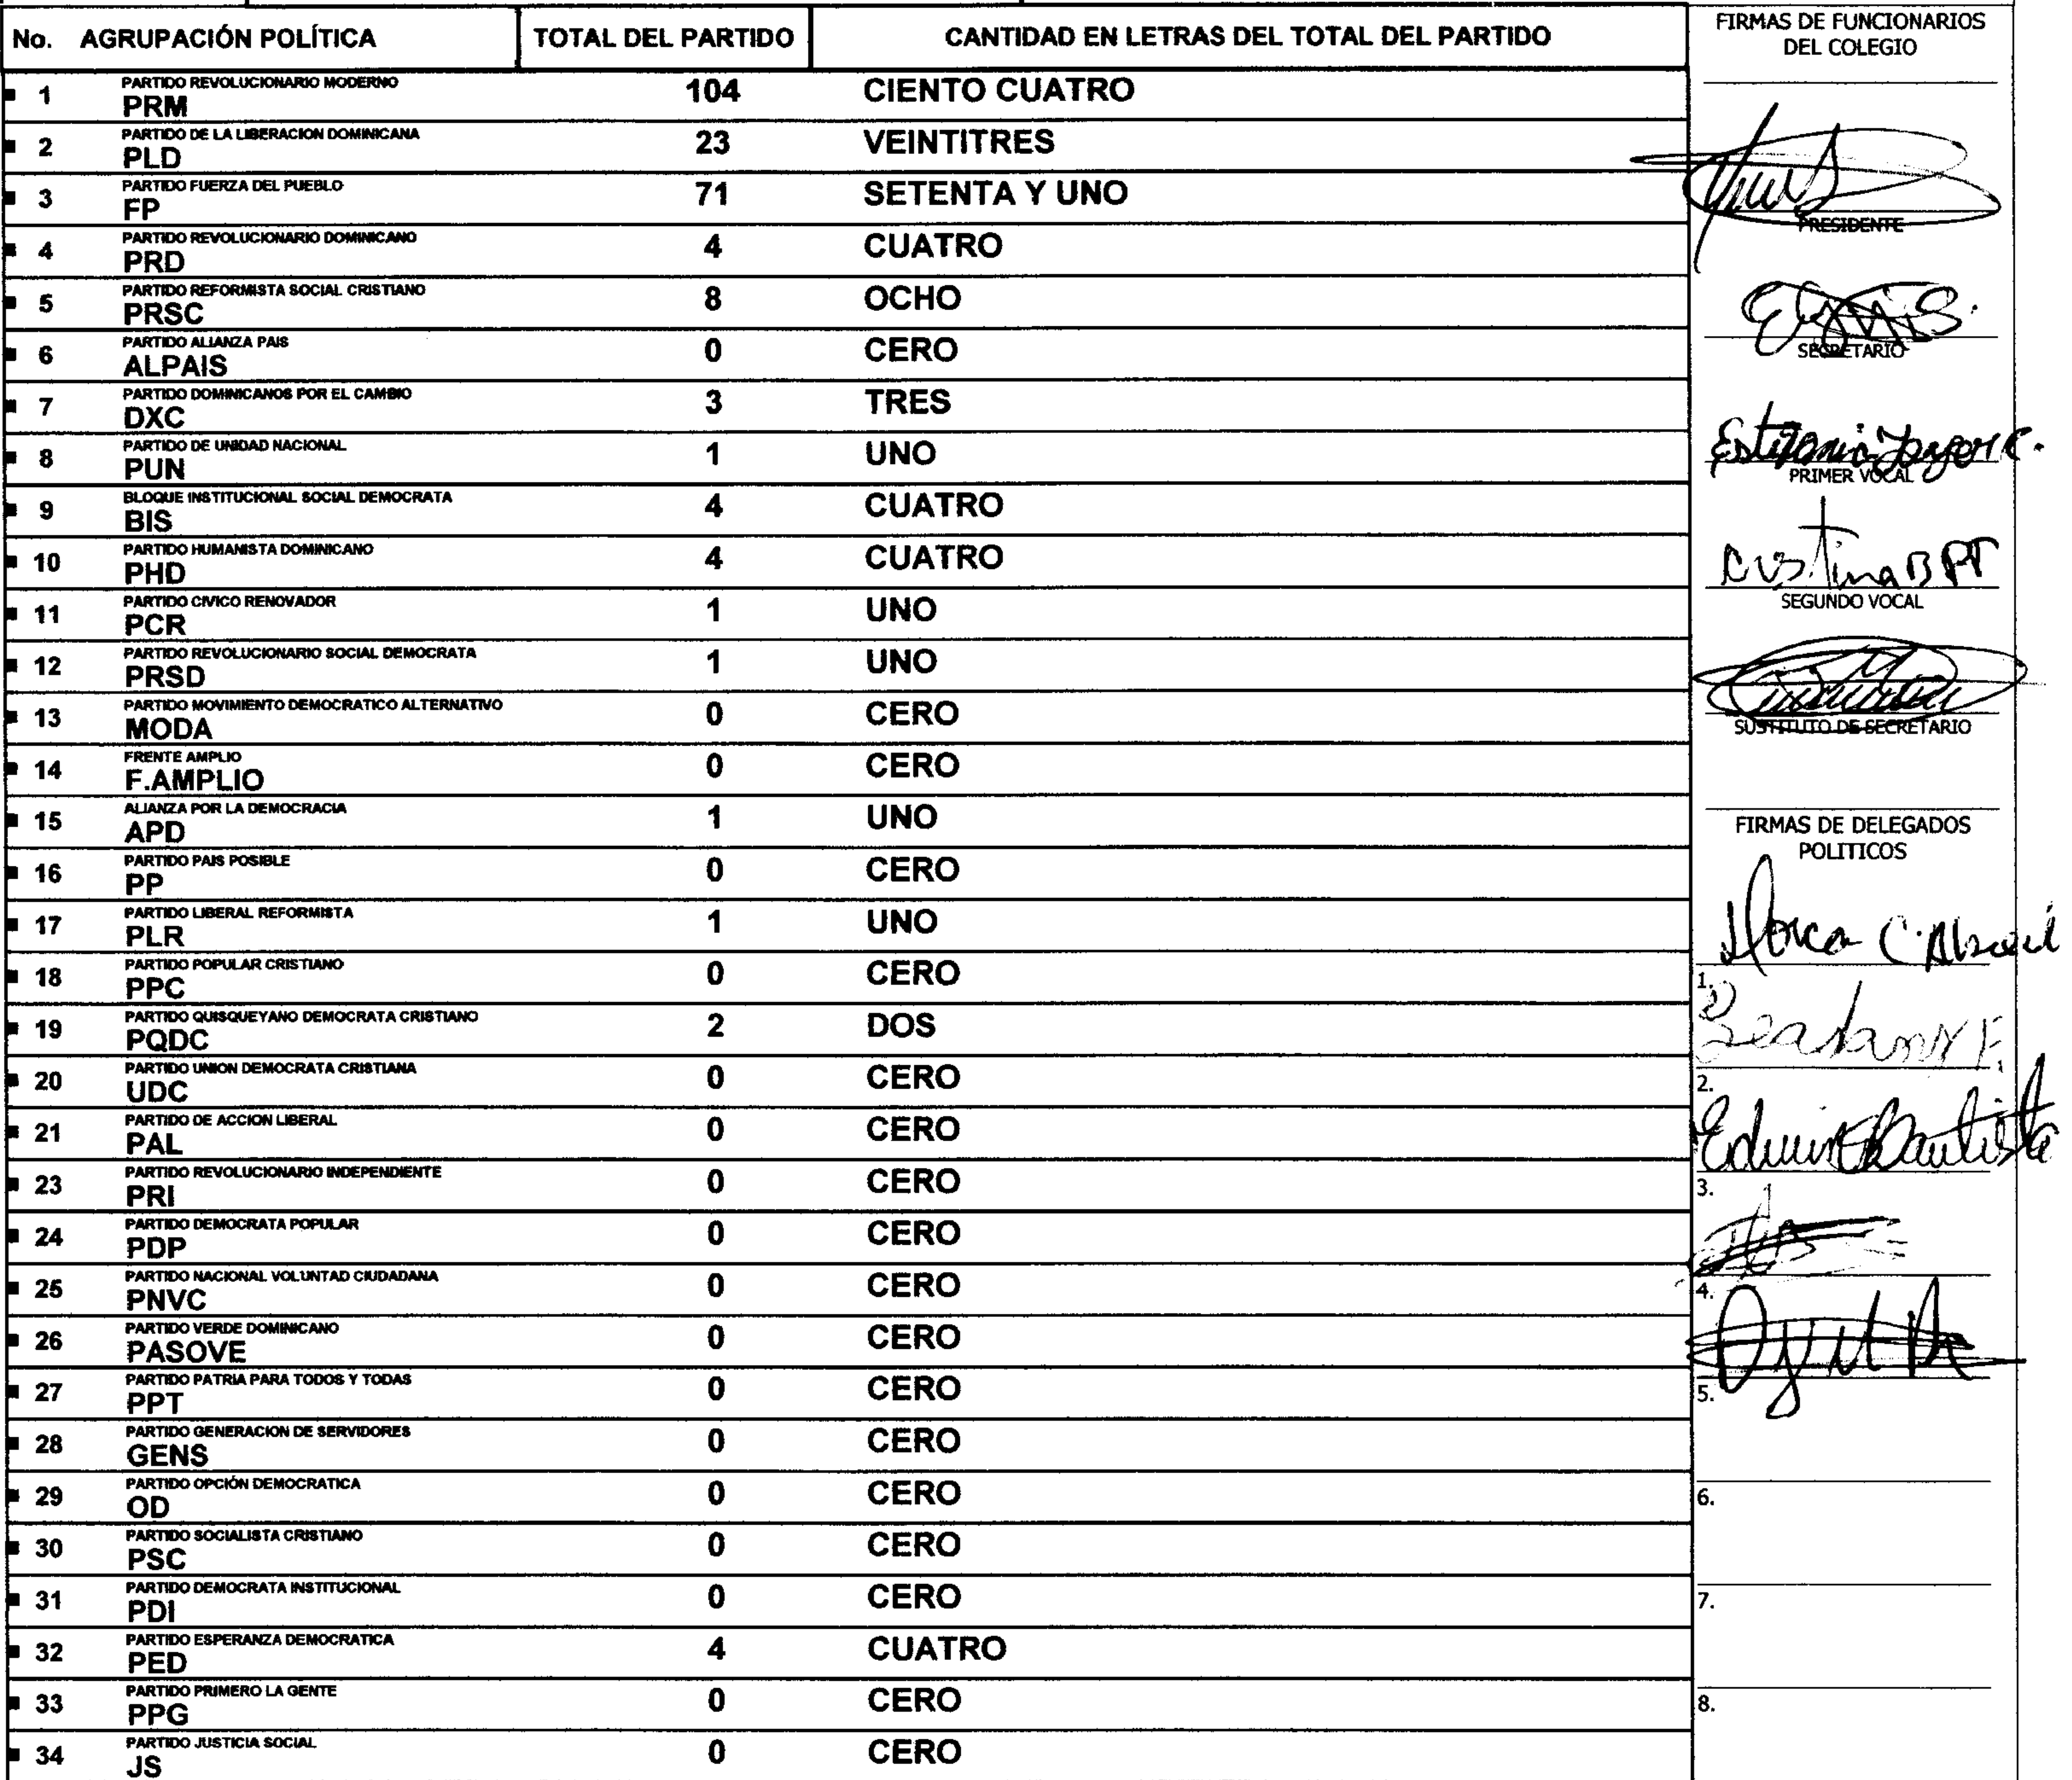 No. AGRUPACIÓN POLÍTICA TOTAL DEL PARTIDO CANTIDAD EN LETRAS DEL TOTAL DEL PARTIDO
PARTIDO REVOLUCIONARIO MODERNO
1 PRM 104 CIENTO CUATRO
PARTIDO DE LA LIBERACION DOMINICANA
2 PLD 23 VEINTITRES
PARTIDO FUERZA DEL PUEBLO
3 FP 71 SETENTA Y UNO
PARTIDO REVOLUCIONARIO DOMINICANO
4 PRD 4 CUATRO
PARTIDO REFORMISTA SOCIAL CRISTIANO
5 PRSC 8 OCHO
PARTIDO ALIANZA PAIS
6 ALPAIS 0 CERO
PARTIDO DOMINICANOS POR EL CAMBIO
7 DXC 3 TRES
PARTIDO DE UNIDAD NACIONAL
8 PUN 1 UNO
BLOQUE INSTITUCIONAL SOCIAL DEMOCRATA
9 BIS 4 CUATRO
PARTIDO HUMANISTA DOMINICANO
10 PHD 4 CUATRO
PARTIDO CIVICO RENOVADOR
11 PCR 1 UNO
PARTIDO REVOLUCIONARIO SOCIAL DEMOCRATA
12 PRSD 1 UNO
PARTIDO MOVIMIENTO DEMOCRATICO ALTERNATIVO
13 MODA 0 CERO
FRENTE AMPLIO
14 F.AMPLIO 0 CERO
ALIANZA POR LA DEMOCRACIA
15 APD 1 UNO
PARTIDO PAIS POSIBLE
16 PP 0 CERO
PARTIDO LIBERAL REFORMISTA
17 PLR 1 UNO
PARTIDO POPULAR CRISTIANO
18 PPC 0 CERO
PARTIDO QUISQUEYANO DEMOCRATA CRISTIANO
19 PQDC 2 DOS
PARTIDO UNION DEMOCRATA CRISTIANA
20 UDC 0 CERO
PARTIDO DE ACCION LIBERAL
21 PAL 0 CERO
PARTIDO REVOLUCIONARIO INDEPENDIENTE
23 PRI 0 CERO
PARTIDO DEMOCRATA POPULAR
24 PDP 0 CERO
PARTIDO NACIONAL VOLUNTAD CIUDADANA
25 PNVC 0 CERO
PARTIDO VERDE DOMINICANO
26 PASOVE 0 CERO
PARTIDO PATRIA PARA TODOS Y TODAS
27 PPT 0 CERO
PARTIDO GENERACION DE SERVIDORES
28 GENS 0 CERO
PARTIDO OPCIÓN DEMOCRATICA
29 OD 0 CERO
PARTIDO SOCIALISTA CRISTIANO
30 PSC 0 CERO
PARTIDO DEMOCRATA INSTITUCIONAL
31 PDI 0 CERO
PARTIDO ESPERANZA DEMOCRATICA
32 PED 4 CUATRO
PARTIDO PRIMERO LA GENTE
33 PPG 0 CERO
PARTIDO JUSTICIA SOCIAL
34 JS 0 CERO
FIRMAS DE FUNCIONARIOS
DEL COLEGIO
PRESIDENTE
SECRETARIO
PRIMER VOCAL
SEGUNDO VOCAL
SUSTITUTO DE SECRETARIO
FIRMAS DE DELEGADOS
POLITICOS
1.
2.
Edwin Bautista
3.
4.
5.
6.
7.
8.